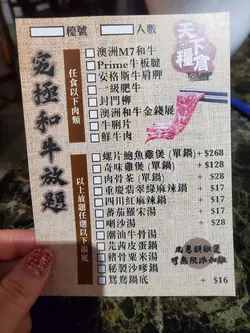 檯號 人數
天下糧倉
究極和牛放題
任食以下肉類
澳洲M7和牛
Prime牛板腱
安格斯牛肩胛
一級肥牛
封門柳
澳洲和牛金錢展
牛脷片
鮮牛肉
以上放題任選以下湯底
螺片鮑魚雞煲 (單鍋) + $268
奇味雞煲 (單鍋) + $128
肉骨茶 (單鍋) + $28
重慶翡翠綠麻辣鍋 + $17
四川紅麻辣鍋 + $17
蕃茄羅宋湯 + $17
喇沙湯 + $28
潮汕牛骨湯
芫茜皮蛋鍋
豬骨粟米湯
秘製沙嗲鍋
鴛鴦鍋底 + $16